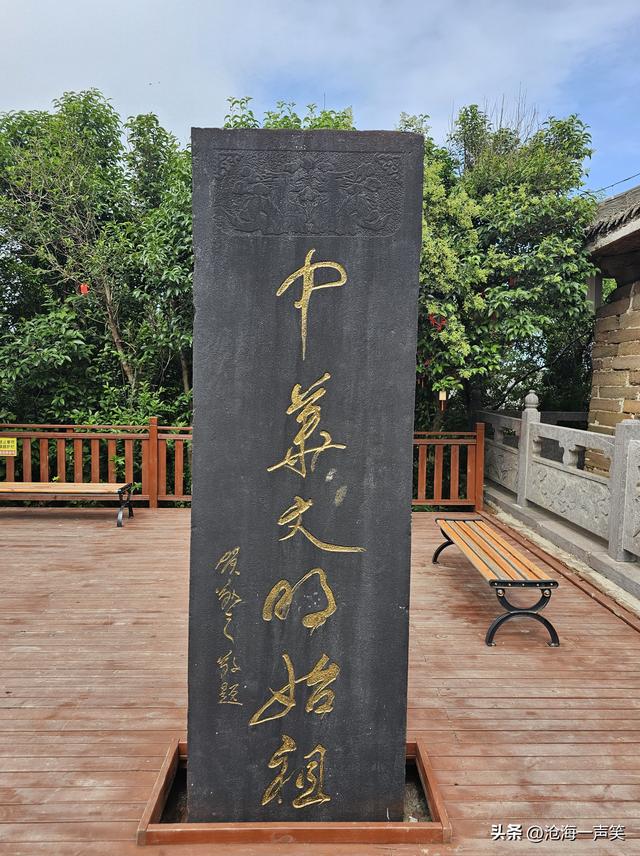 中华文明始祖
贺敬之敬题
头条 @沧海一声笑